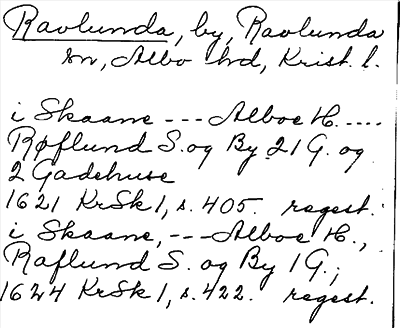 Ravlunda, by, Ravlunda
sn, Albo hd, Krist. l.
i Skaane --- Alboe H. ....
Røflund S. og By 21 G. og
2 Gadehuse
1621 KrSk 1, s. 405. regest.
i Skaane, --- Alboe H.,
Raflund S. og By 1 G.;
1624 KrSk 1, s. 422. regest.